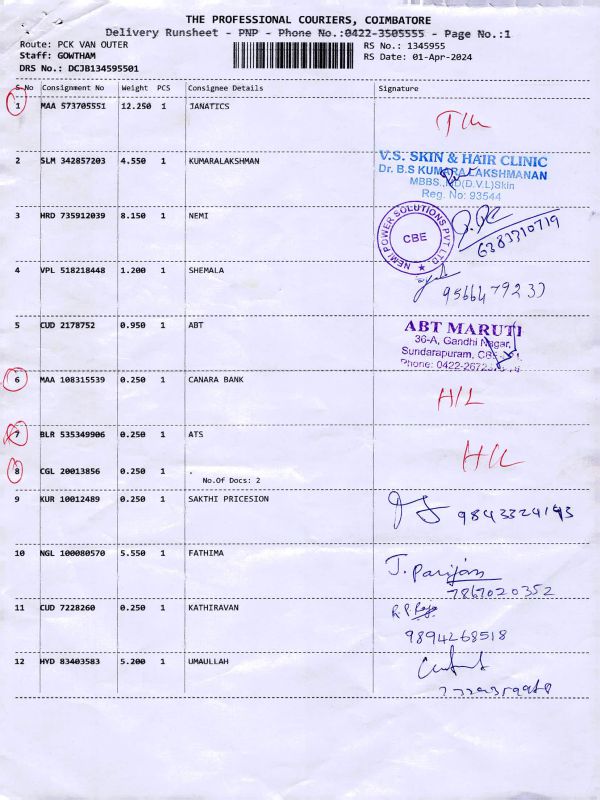 THE PROFESSIONAL COURIERS, COIMBATORE
Delivery Runsheet - PNP - Phone No.:0422-3505555 - Page No.:1
Route: PCK VAN OUTER RS No.: 1345955
Staff: GOWTHAM RS Date: 01-Apr-2024
DRS No.: DCJB134595501
S.No Consignment No Weight PCS Consignee Details Signature
1 MAA 573705551 12.250 1 JANATICS
2 SLM 342857203 4.550 1 KUMARALAKSHMAN V.S. SKIN & HAIR CLINIC
Dr. B.S KUMARALAKSHMANAN
MBBS.,MD(D.V.L)Skin
Reg. No: 93544
3 HRD 735912039 8.150 1 NEMI NEMI POWER SOLUTIONS PVT LTD. CBE
6383310719
4 VPL 518218448 1.200 1 SHEMALA
5 CUD 2178752 0.950 1 ABT ABT MARUTI
36-A, Gandhi Nagar,
Sundarapuram,
Phone: 0422-2672
6 MAA 108315539 0.250 1 CANARA BANK
H/L
7 BLR 535349906 0.250 1 ATS
H/L
8 CGL 20013856 0.250 1 .
No.Of Docs: 2
9 KUR 10012489 0.250 1 SAKTHI PRICESION
9843324143
10 NGL 100080570 5.550 1 FATHIMA
7867020352
11 CUD 7228260 0.250 1 KATHIRAVAN
9894268518
12 HYD 83403583 5.200 1 UMAULLAH